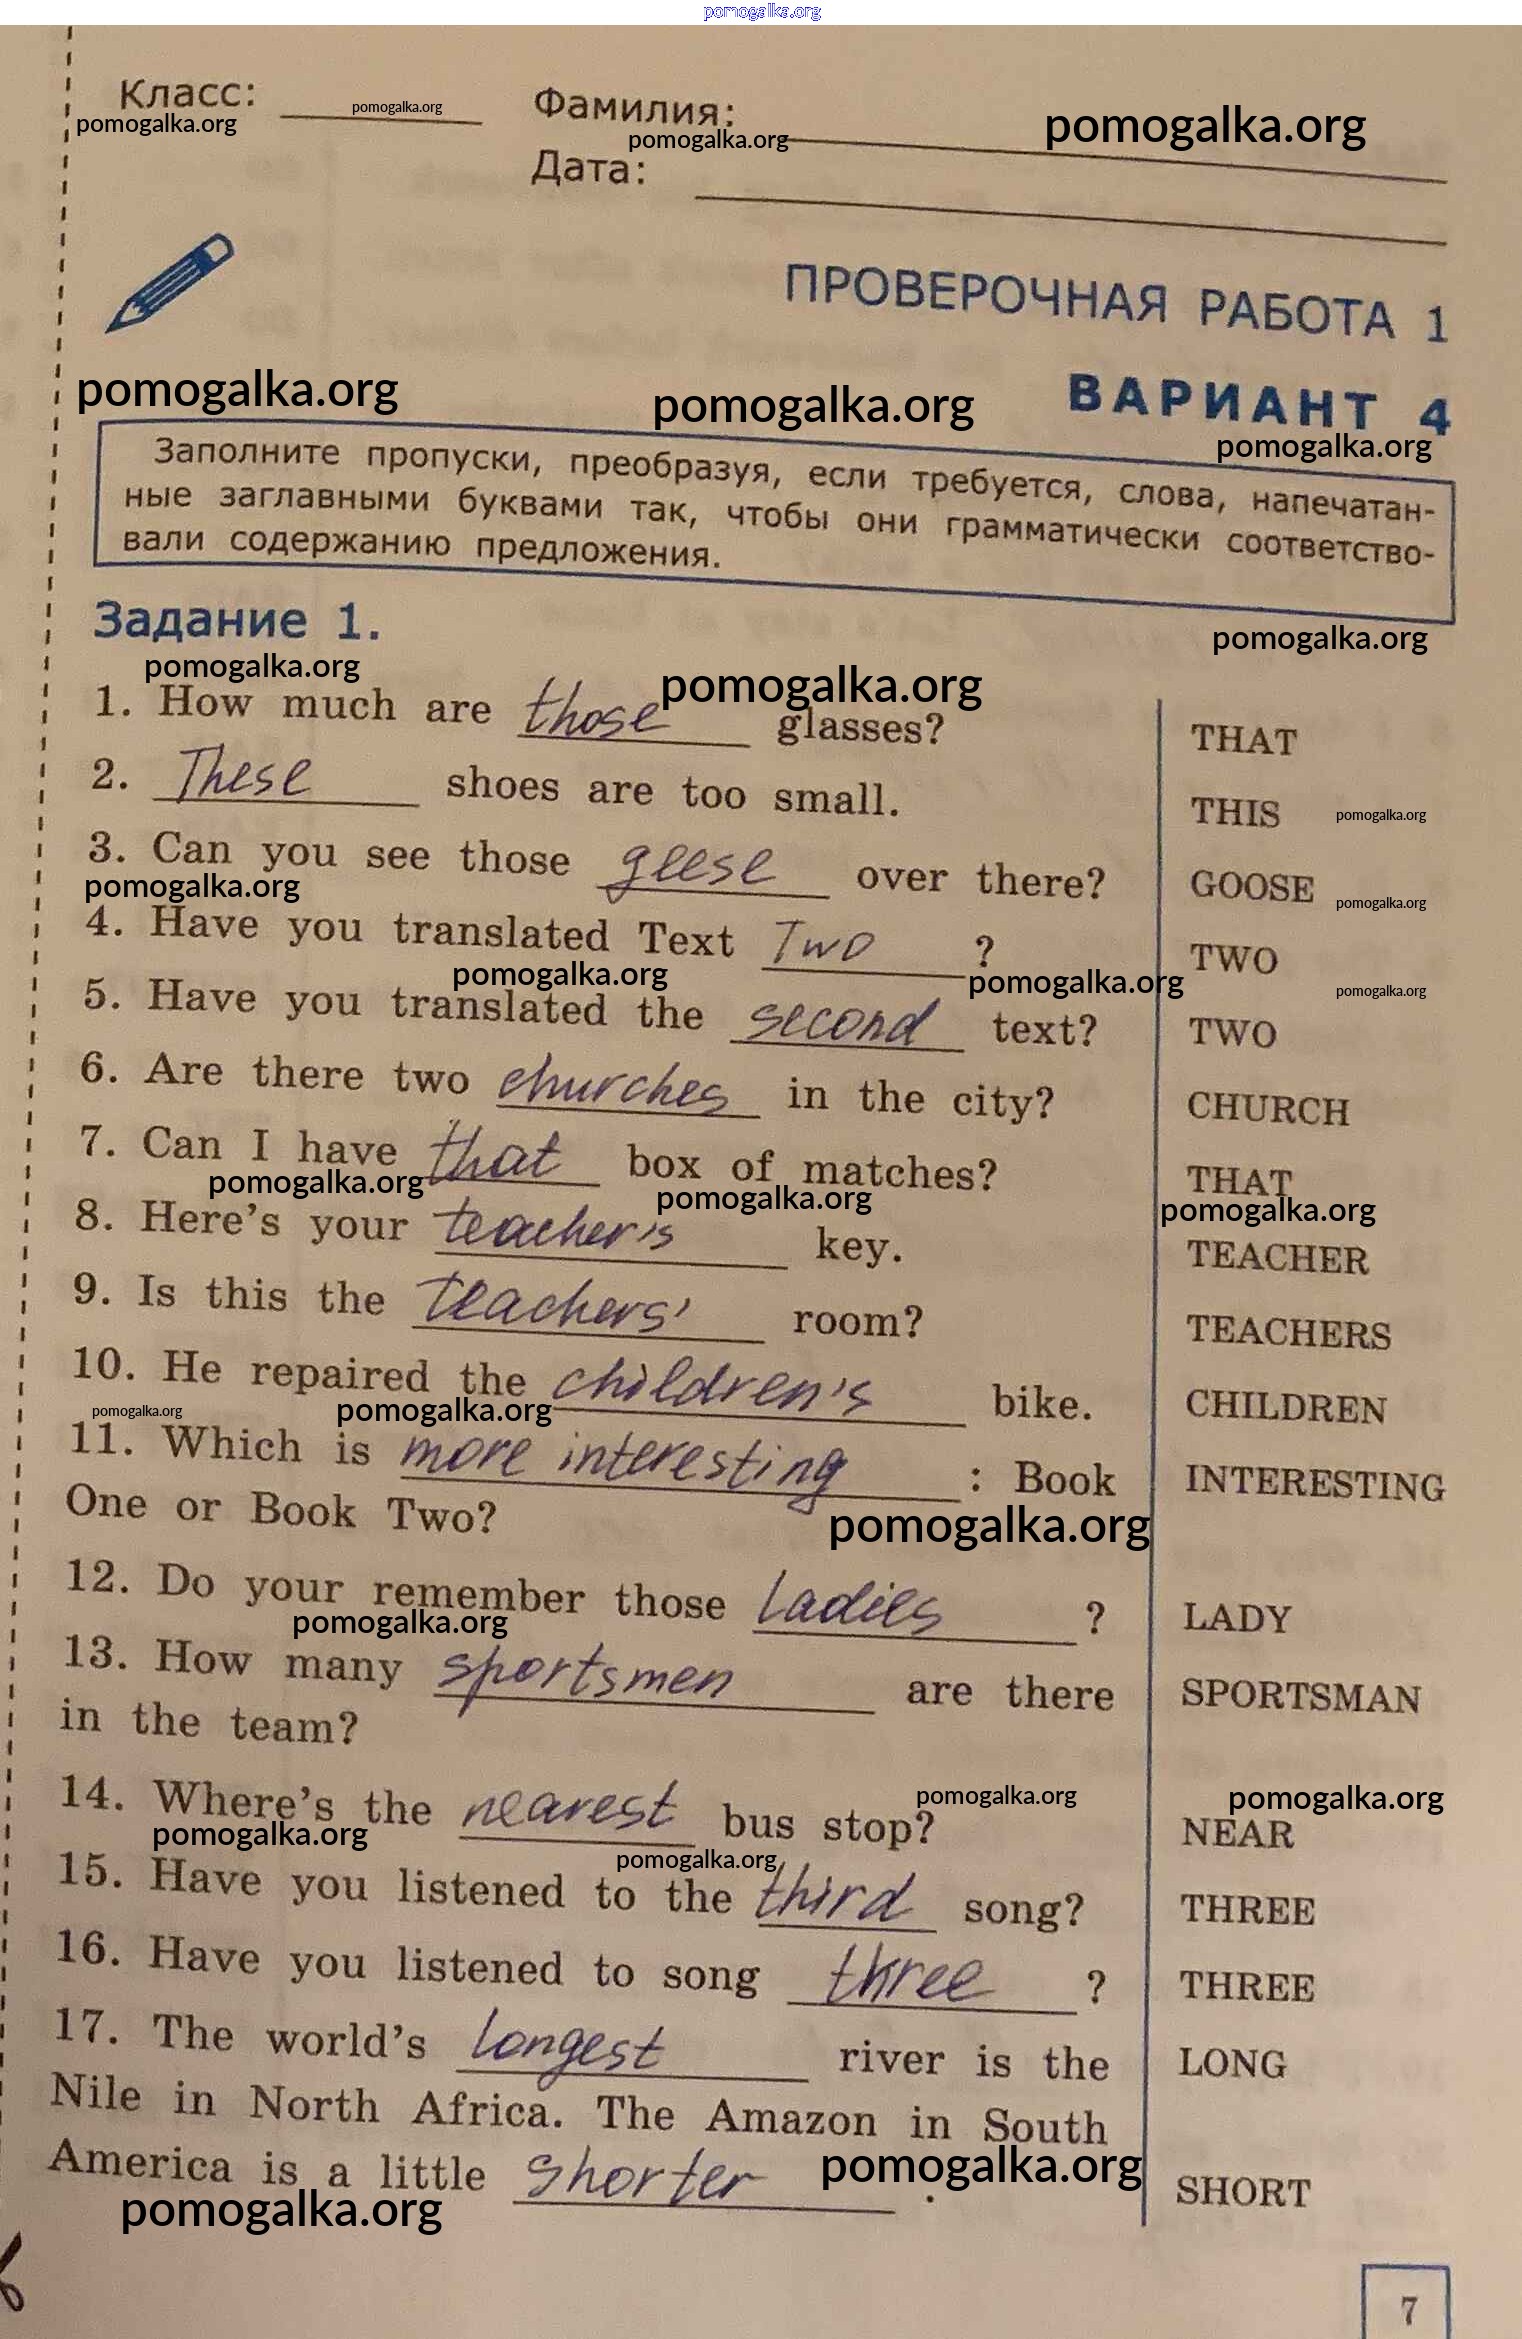 pomogalka.org
Класс: pomogalka.org Фамилия:
pomogalka.org pomogalka.org pomogalka.org
Дата:
ПРОВЕРОЧНАЯ РАБОТА 1
pomogalka.org pomogalka.org ВАРИАНТ 4
pomogalka.org
Заполните пропуски, преобразуя, если требуется, слова, напечатан-
ные заглавными буквами так, чтобы они грамматически соответство-
вали содержанию предложения.
Задание 1.
pomogalka.org
pomogalka.org pomogalka.org
1. How much are those glasses? THAT
2. These shoes are too small. THIS pomogalka.org
3. Can you see those geese over there? GOOSE pomogalka.org
pomogalka.org
4. Have you translated Text Two ? TWO
pomogalka.org pomogalka.org pomogalka.org
5. Have you translated the second text? TWO
6. Are there two churches in the city? CHURCH
7. Can I have that box of matches? THAT
pomogalka.org pomogalka.org pomogalka.org
8. Here's your teacher's key. TEACHER
9. Is this the teachers' room? TEACHERS
10. He repaired the children's bike. CHILDREN
pomogalka.org pomogalka.org
11. Which is more interesting : Book INTERESTING
One or Book Two?
pomogalka.org
12. Do your remember those ladies ? LADY
pomogalka.org
13. How many sportsmen are there SPORTSMAN
in the team?
pomogalka.org pomogalka.org
14. Where's the nearest bus stop? NEAR
pomogalka.org pomogalka.org
15. Have you listened to the third song? THREE
16. Have you listened to song three ? THREE
17. The world's longest river is the LONG
Nile in North Africa. The Amazon in South
America is a little shorter . SHORT
pomogalka.org pomogalka.org
7